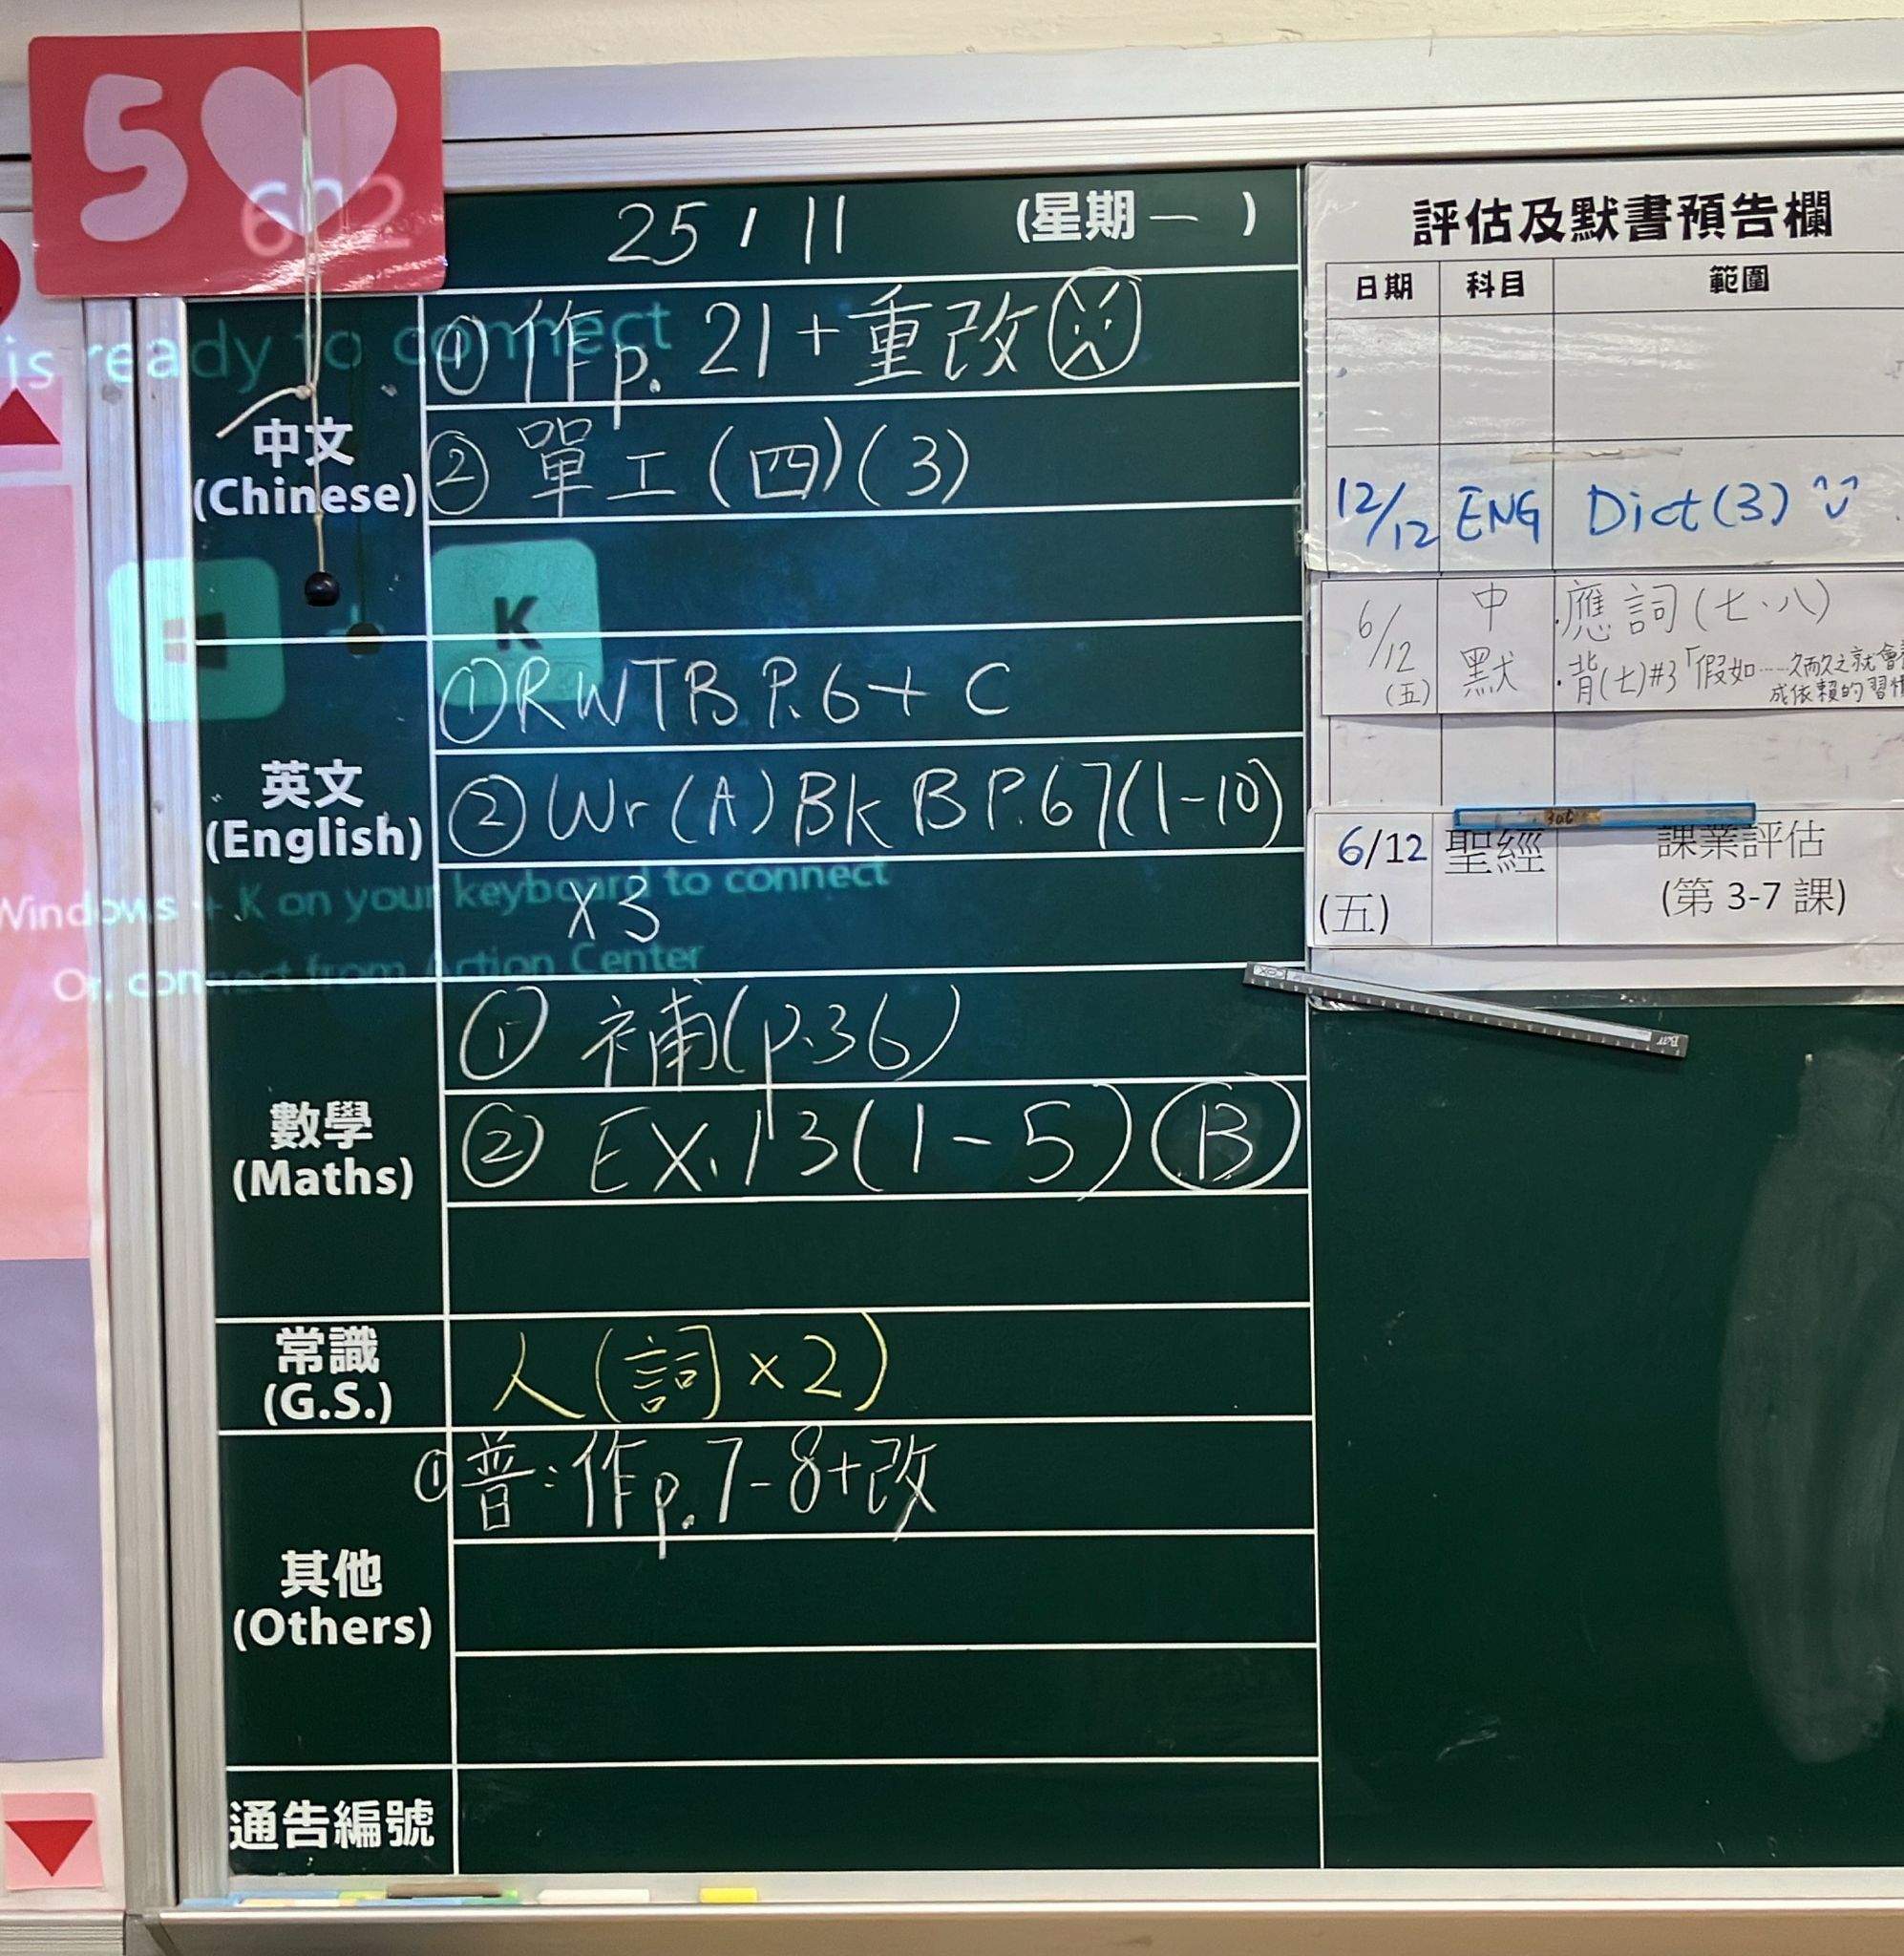 5
602
is ready to connect
25 / 11 (星期一)
中文
(Chinese)
① 作p. 21+重改
② 單工(四)(3)
K
英文
(English)
① RWTB P.6+ C
② Wr(A) Bk B P.67(1-10)
x3
Windows + K on your keyboard to connect
Or, connect from Action Center
數學
(Maths)
① 補(p.36)
② EX.13(1-5) Ⓑ
常識
(G.S.)
人(詞x2)
其他
(Others)
① 普:作p.7-8+改
通告編號
評估及默書預告欄
日期 科目 範圍
12/12 ENG Dict(3)
6/12 (五) 中默 .應詞(七、八)
.背(七)#3「假如……久而久之就會
成依賴的習
6/12 (五) 聖經 課業評估
(第 3-7 課)